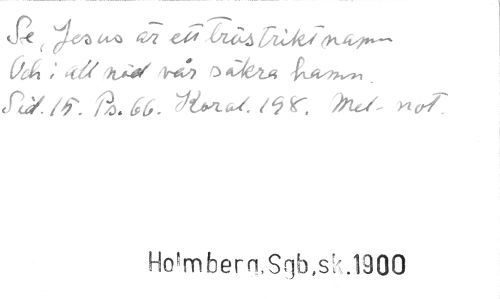 Se, Jesus är ett tröstrikt namn
Och i all nöd vår säkra hamn.
Sid. 15. Ps. 66. Koral. 198. Mel- not.
Holmberg, Sgb, sk. 1900